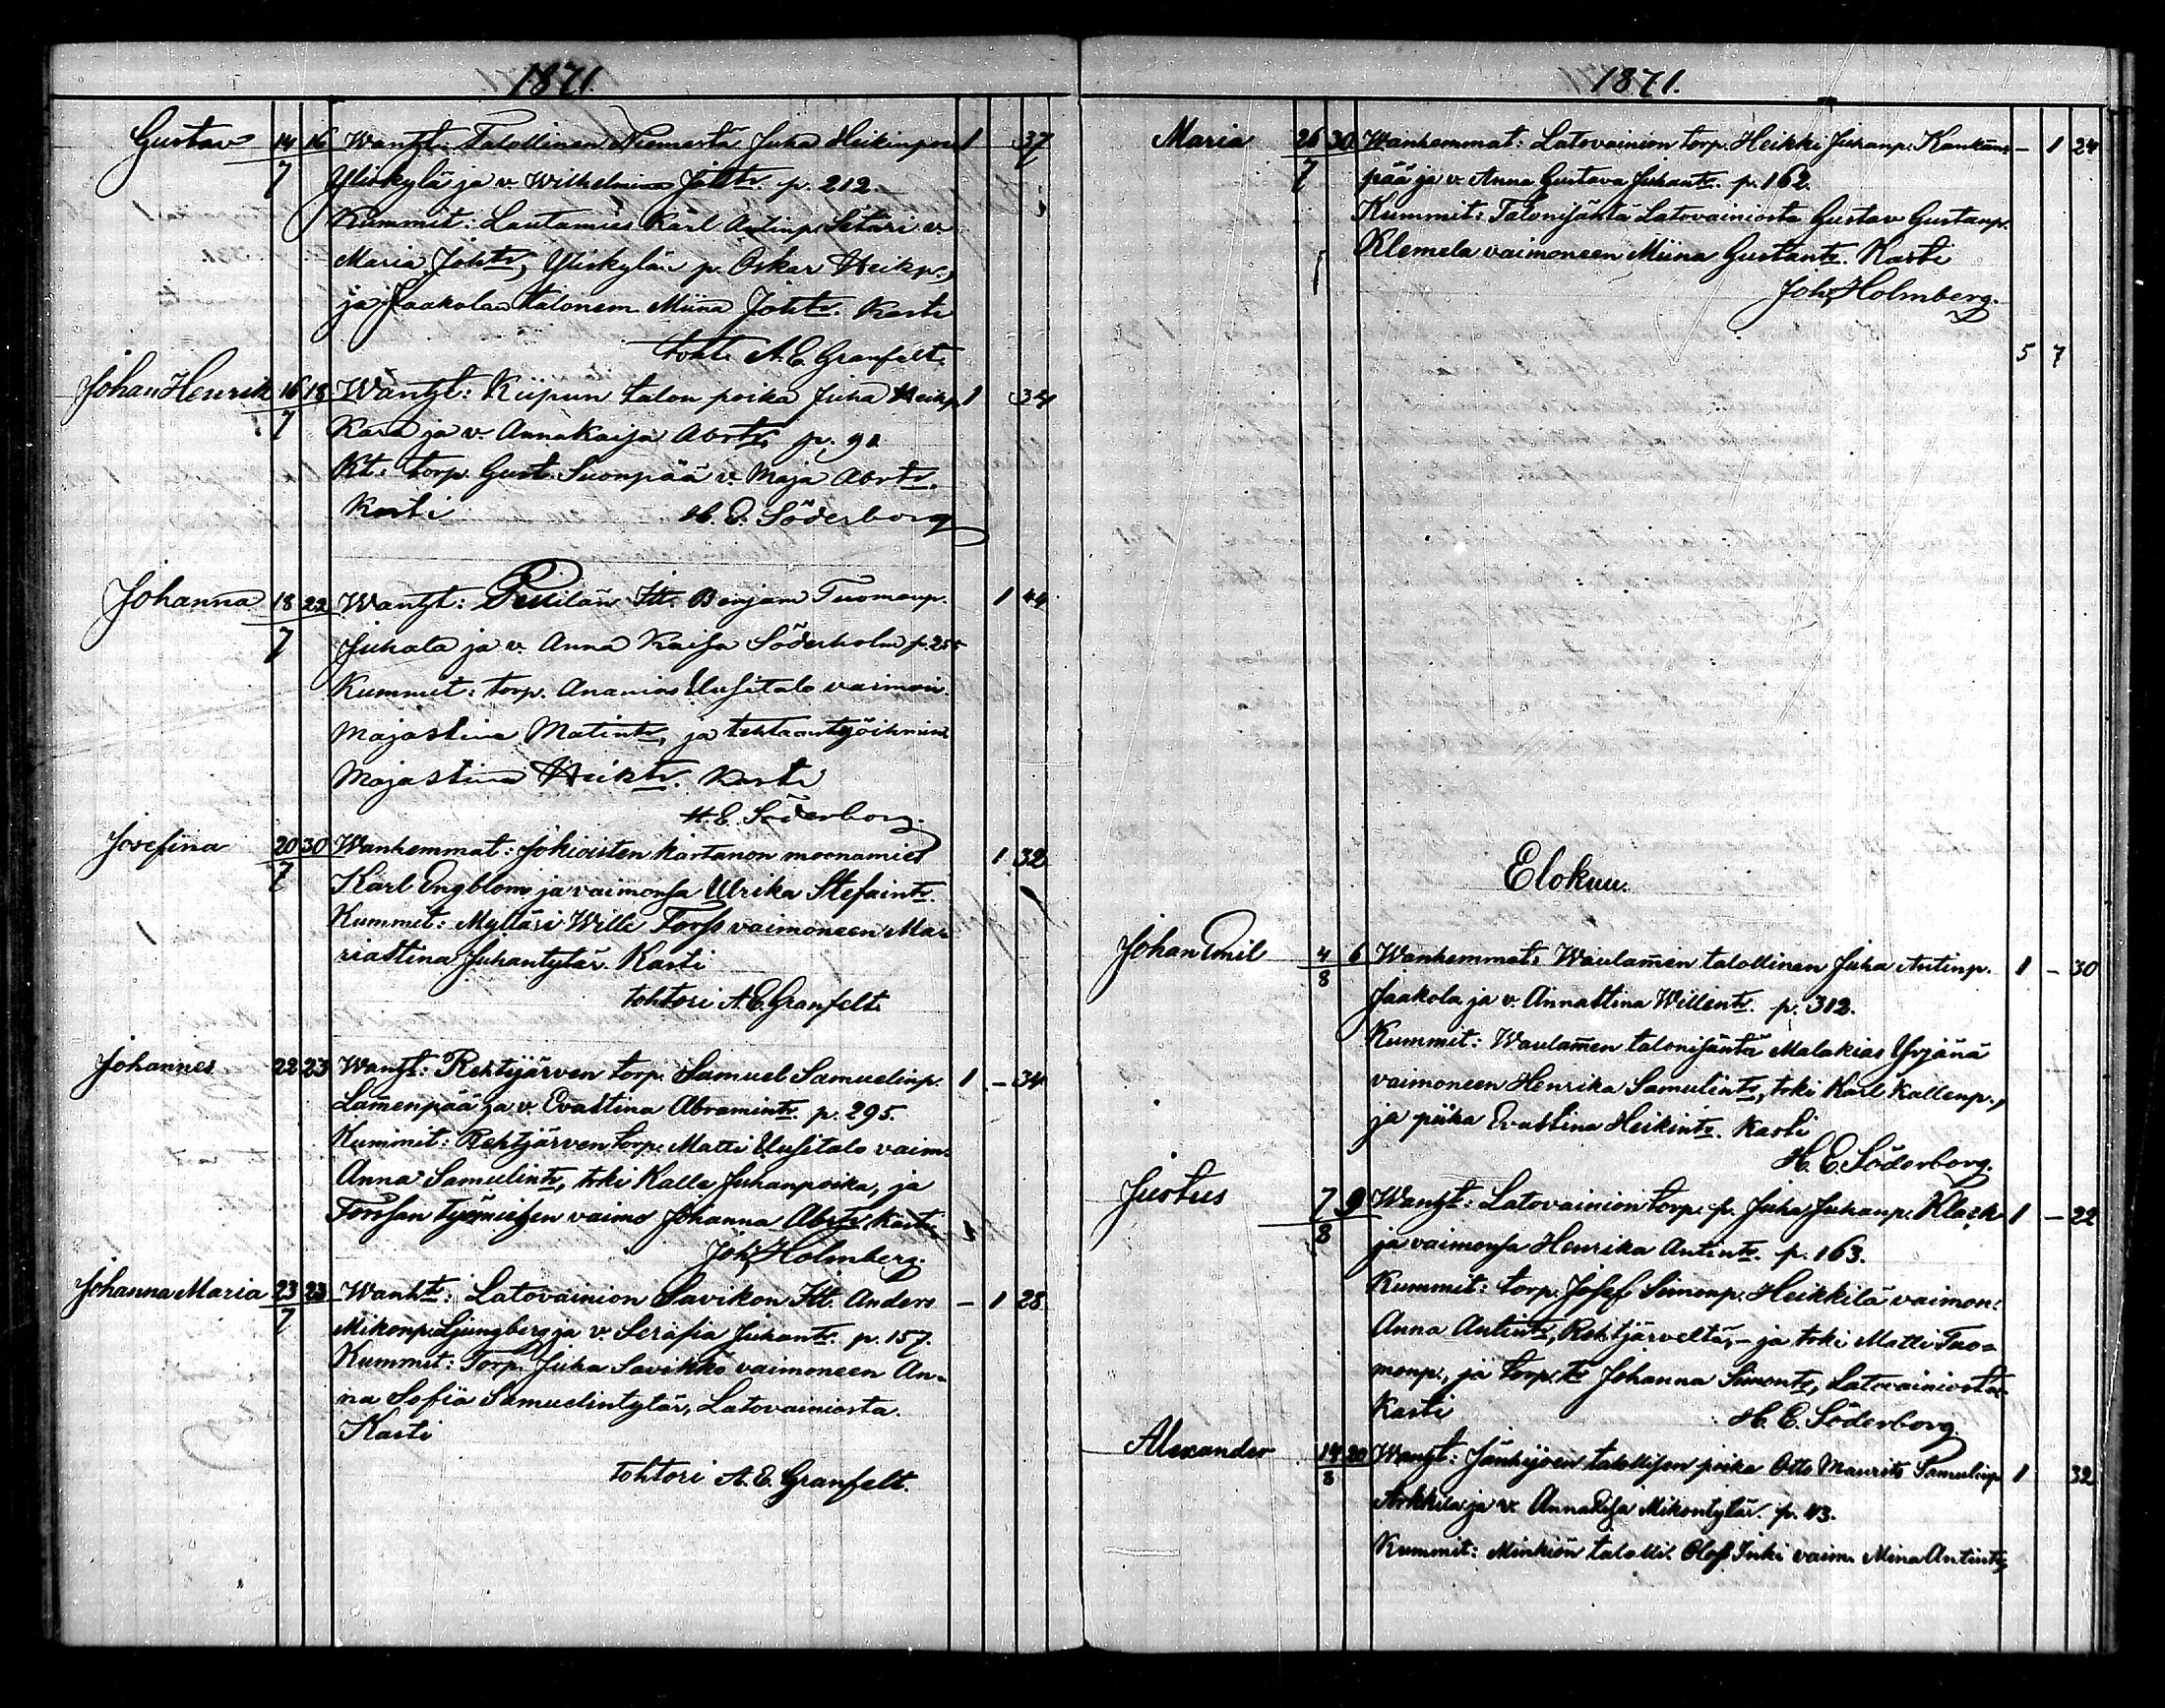 1871.
Gustav 14 16 Wanht: Talollinen Niemestä Juha Heikinpoi 1 37
7 Yliskylä ja v. Wilhelmina Johtr. p. 212.
Kummit: Lautamies Karl Antinp. Setäri v.
Maria Johtr, Yliskylän p. Oskar Heikp.,
ja Jaakolan talonem. Miina Johtr. Kasti
toht. A. E. Granfelt.
Johan Henrik 16 18 Wanht: Kiipun talon poika Juha Heikp. 1 34
7 Kara ja v. Anna Kaisa Abrtr. p. 91
Kt: torp. Gust. Suonpää v. Maja Abrtr.
Kasti H. E. Söderborg
Johanna 18 22 Wanht: Itt. Benjam Tuomanp. 1 44
7 Juhala ja v. Anna Kaisa Söderholm p. 255
Kummit: torp. Ananias Uusitalo vaimon.
Majastina Matintr, ja tehtaantyöihmin.
Majastina Heiktr. Kasti
H. E. Söderborg.
Josefina 20 30 Wanhemmat: Jokioisten kartanon moonamies 1 32
7 Karl Engblom ja vaimonsa Ulrika Stefaintr.
Kummit: Myllari Wille Forss vaimoneen Ma-
riastina Juhantytär. Kasti
tohtori A. E. Granfelt.
Johannes 22 23 Wanht: Rehtijärven torp. Samuel Samuelinp. 1 – 34
Lamenpää ja v. Evastina Abramintr. p. 295.
Kummit: Rehtjärven torp. Matti Uusitalo vaim.
Anna Samulintr, trki Kalle Juhanpoika, ja
Forssan työmiehen vaimo Johanna Abrtr. Kasti
Joh. Holmberg.
Johanna Maria 23 23 Wanhtt: Latovainion Savikon Itt. Anders – 1 28
7 Mikonp. Ljungberg ja v. Serafia Juhantr. p. 157.
Kummit: Torp. Juha Savikko vaimoneen An-
na Sofia Samuelintytär, Latovainiosta.
Kasti
tohtori A. E. Granfelt.
1871.
Maria 26 30 Wanhemmat: Latovainion torp. Heikki Juhanp. Kankään- – 1 24
7 pää ja v. Anna Gustava Juhantr. p. 162.
Kummit: Talonisäntä Latovainiosta Gustav Gustavp.
Klemela vaimoneen Miina Gustantr. Kasti
Joh. Holmberg.
5 7
Elokuu.
Johan Emil 4 6 Wanhemmat: Waulamen talollinen Juha Antinp. 1 – 30
8 Jaakola ja v. Annastina Willentr. p. 312.
Kummit: Waulamen talonisäntä Malakias Yrjänä
vaimoneen Henrika Samulintr, trki Karl Kallenp.,
ja piika Evastina Heikintr. Kasti
H. E. Söderborg.
Justus 7 9 Wanht: Latovainion torp. p. Juha Juhanp. Klack 1 – 22
8 ja vaimonsa Henrika Antintr. p. 163.
Kummit: torp. Josef Simonp. Heikkilä vaimon:
Anna Antintr, Rehtjärveltä, – ja trki Matti Tuo-
monp., ja torp. tr Johanna Simontr, Latovainiosta
Kasti H. E. Söderborg
Alexander 14 20 Wanht: Jänhijoen talollisen poika Otto Maurits Samulinp. 1 32
8 Arkkila ja v. Annalisa Mikontytär. p. 43.
Kummit: Minkiön talolli. Olof Inki vaim. Mina Antintr,